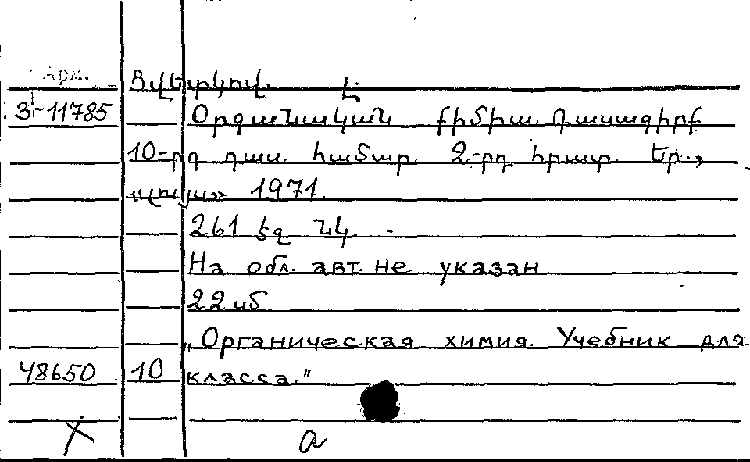 Арм. Ցվետկով Լ.
3-11785 Օրգանական քիմիա. Դասագիրք
10-րդ դաս. համար. 2-րդ հրատ. Եր.,
«Լույս» 1971.
261 էջ նկ.
На обл. авт. не указан
„Органическая химия. Учебник для
48650 10 класса."
X a